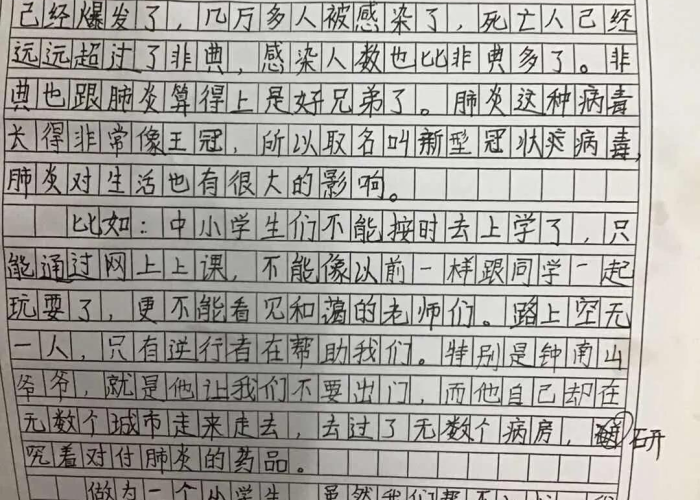 己经爆发了，几万多人被感染了，死亡人己经
远远超过了非典，感染人数也比非典多了。非
典也跟肺炎算得上是好兄弟了。肺炎这种病毒
长得非常像王冠，所以取名叫新型冠状病毒，
肺炎对生活也有很大的影响。
比如：中小学生们不能按时去上学了，只
能通过网上上课，不能像以前一样跟同学一起
玩耍了，更不能看见和蔼的老师们。路上空无
一人，只有逆行者在帮助我们。特别是钟南山
爷爷，就是他让我们不要出门，而他自己却在
无数个城市走来走去，去过了无数个病房，研
究着对付肺炎的药品。
做为一个小学生，虽然我们帮不